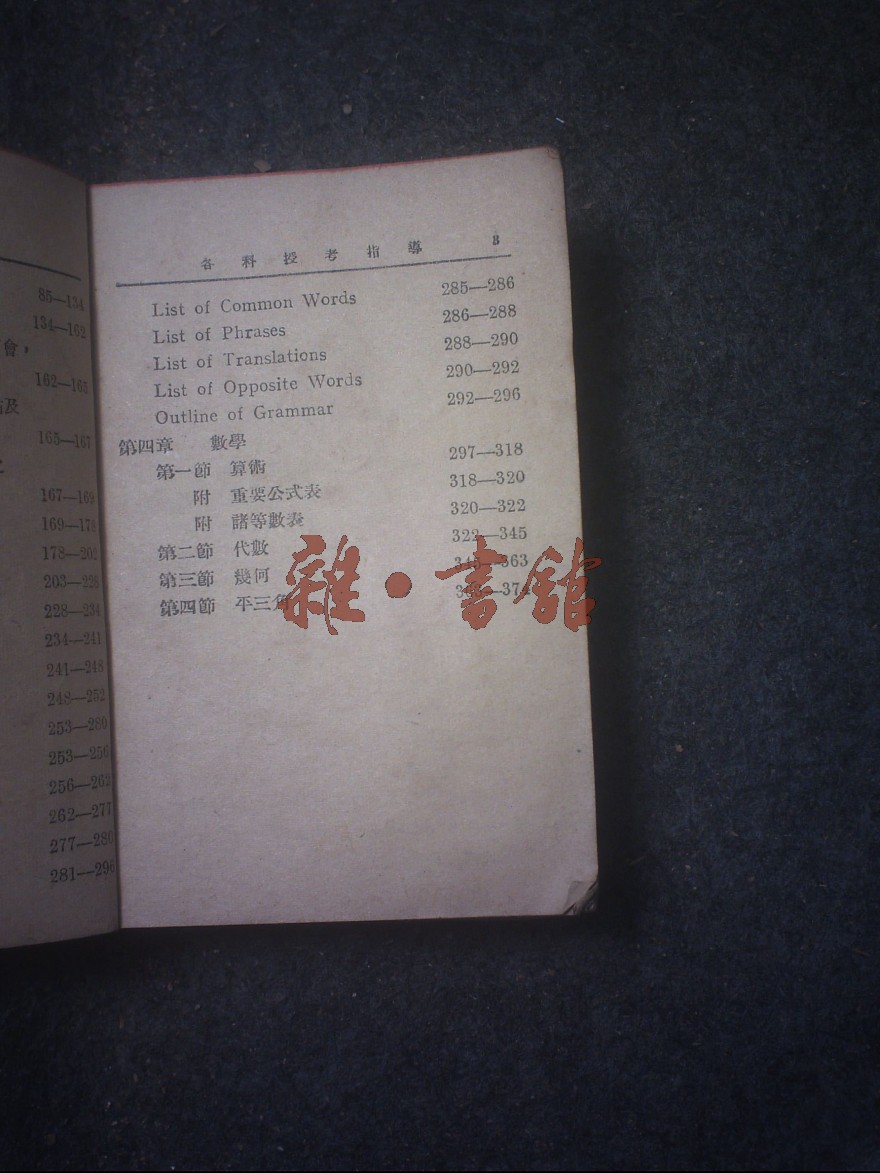 85—134
134—162
會，
162—165
及
165—167
167—169
169—178
178—202
203—228
228—234
234—241
241—248
248—252
253—280
253—256
256—262
262—277
277—280
281—296
各科投考指導 3
List of Common Words 285—286
List of Phrases 286—288
List of Translations 288—290
List of Opposite Words 290—292
Outline of Grammar 292—296
第四章 數學
第一節 算術 297—318
附 重要公式表 318—320
附 諸等數表 320—322
第二節 代數 322—345
第三節 幾何 345—363
第四節 平三角
雜·書館